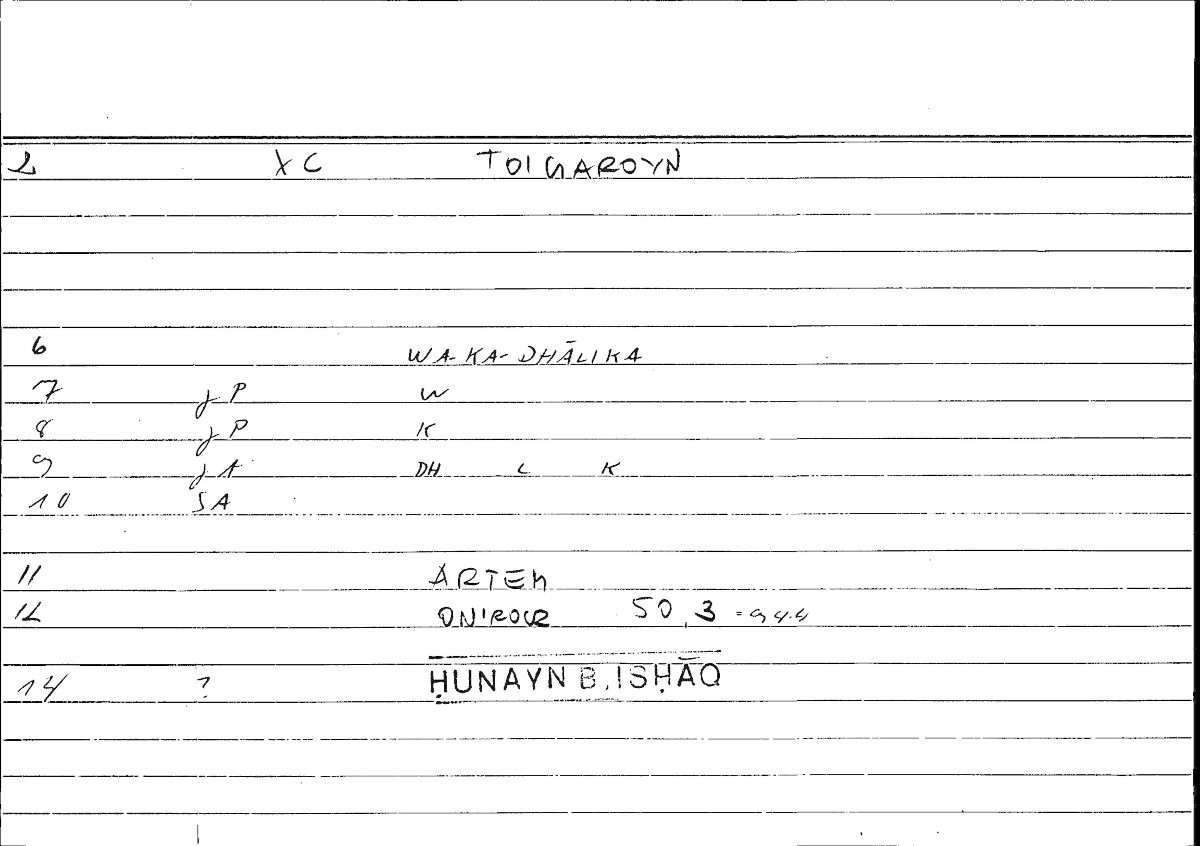 2 XC TOIGAROYN
6 WA-KA-DHĀLIKA
7 JP W
8 JP K
9 JA DH L K
10 SA
11 ARTEM
12 ONIROCR 50,3 = 94.4
14 ? ḤUNAYN B. ISḤĀQ